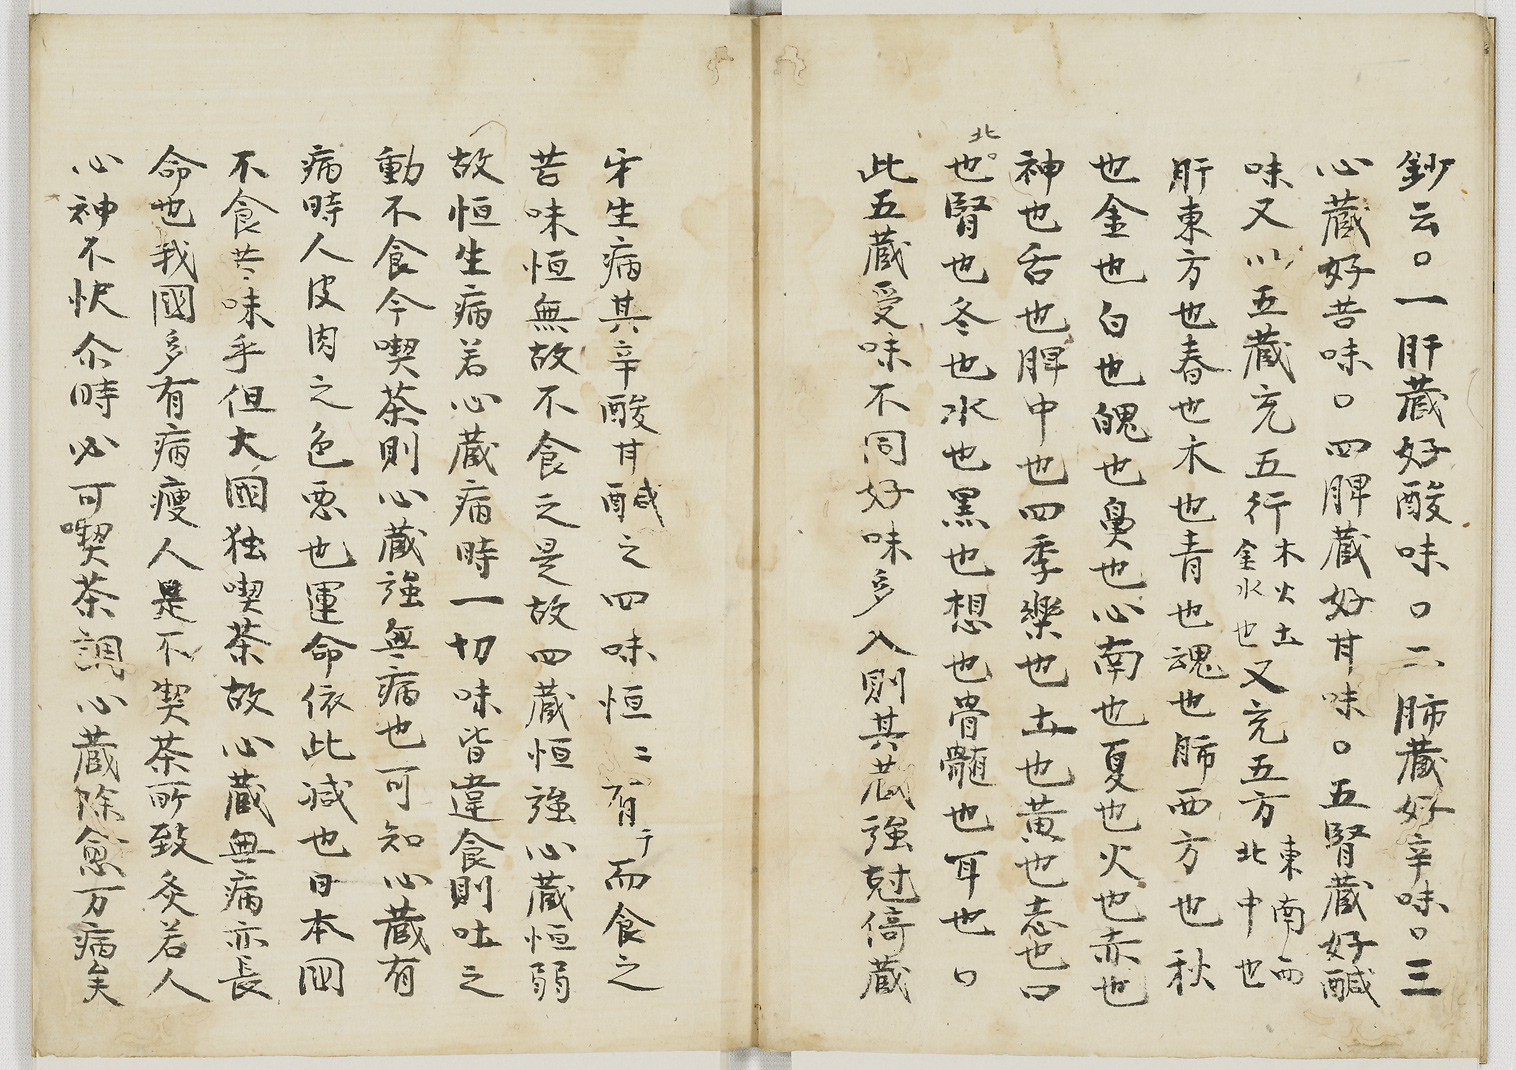 鈔云○一肝蔵好酸味○二肺蔵好辛味○三
心蔵好苦味○四脾蔵好甘味○五腎蔵好醎
味又以五蔵充五行木火土金水也又充五方東南西北中也
肝東方也春也木也青也魂也肺西方也秋
也金也白也魄也鼻也心南也夏也火也赤也
神也舌也脾中也四季樂也土也黄也志也口
北
也腎也冬也水也黒也想也骨髄也耳也○
此五蔵受味不同好味多入則其蔵強尅傍蔵
牙生病其辛酸甘醎之四味恒〻有于而食之
苦味恒無故不食之是故四蔵恒強心蔵恒弱
故恒生病若心蔵病時一切味皆違食則吐之
動不食今喫茶則心蔵強無病也可知心蔵有
病時人皮肉之色悪也運命依此減也日本国
不食苦味乎但大國独喫茶故心蔵無病亦長
命也我國多有病瘦人是不喫茶所致矣若人
心神不快尒時必可喫茶調心蔵除愈万病矣